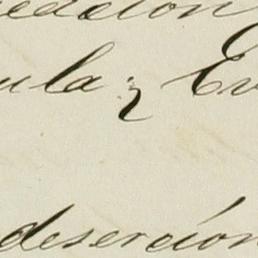 ula; y Ev
desercion